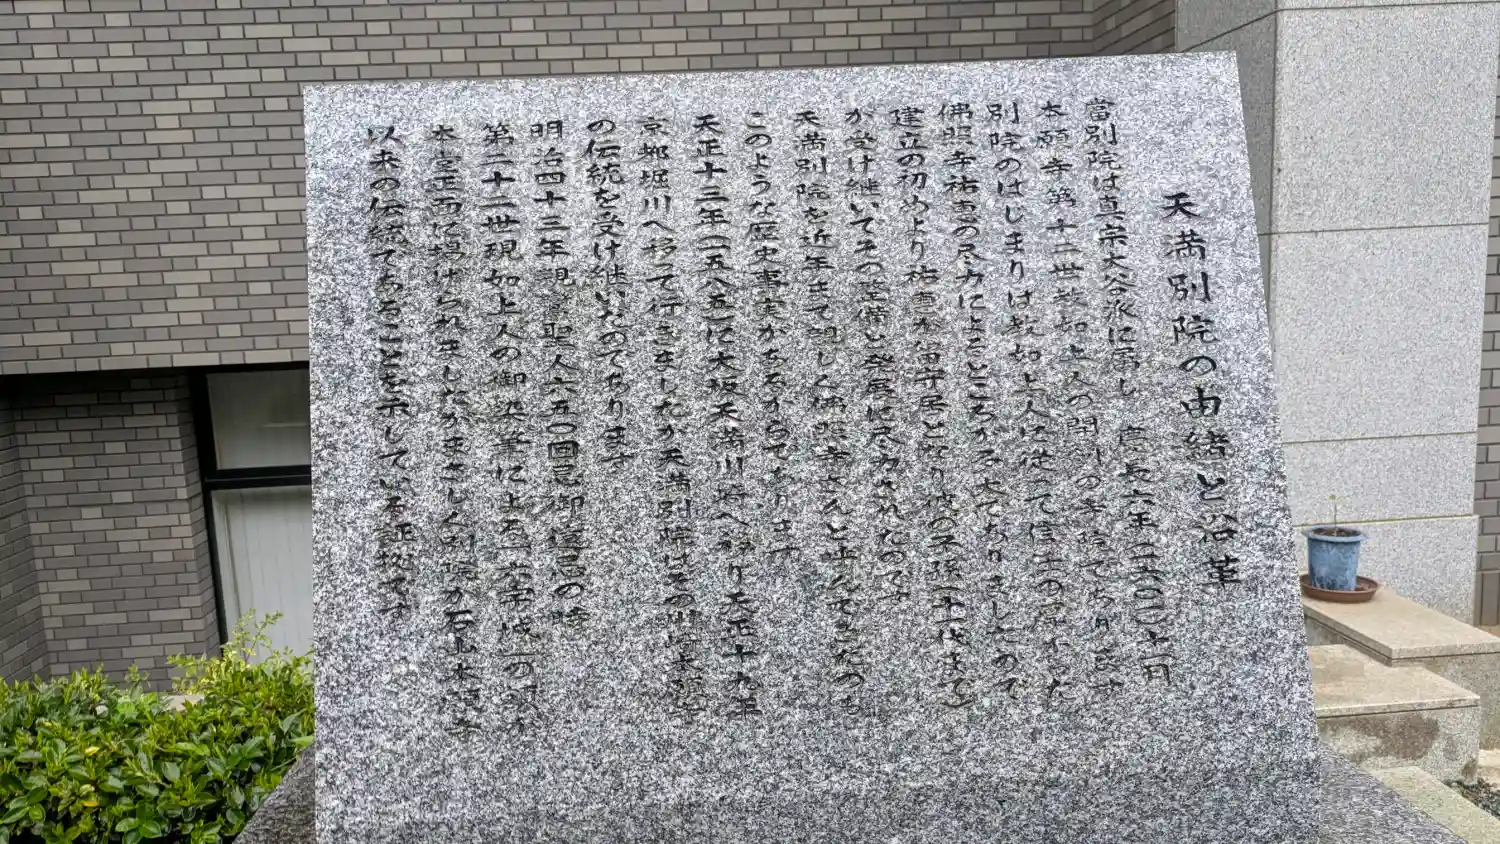 天満別院の由緒と沿革
當別院は真宗大谷派に属し 慶長六年(一六〇一)十一月
本願寺第十二世教如上人の開創の寺院であります
別院のはじまりは教如上人に従って信仰の厚かった
佛照寺祐恵の尽力によるところが多大でありましたので
建立の初めより祐恵が留守居となり彼の子孫(十一代まで)
が受け継いでその整備と発展に尽力されたのです
天満別院を近年まで親しく佛照寺さんと呼んできたのも
このような歴史事実があるからであります
天正十三年(一五八五)に大坂天満川崎へ移り天正十九年
京都堀川へ移って行きましたが天満別院はその川崎本願寺
の伝統を受け継いだのであります
明治四十三年親鸞聖人六五〇回忌御遠忌の時
第二十二世現如上人の御染筆による「六帝城」の額が
本堂正面に掲げられましたがまさしく別院が石山本願寺
以来の伝統であることを示している証拠です